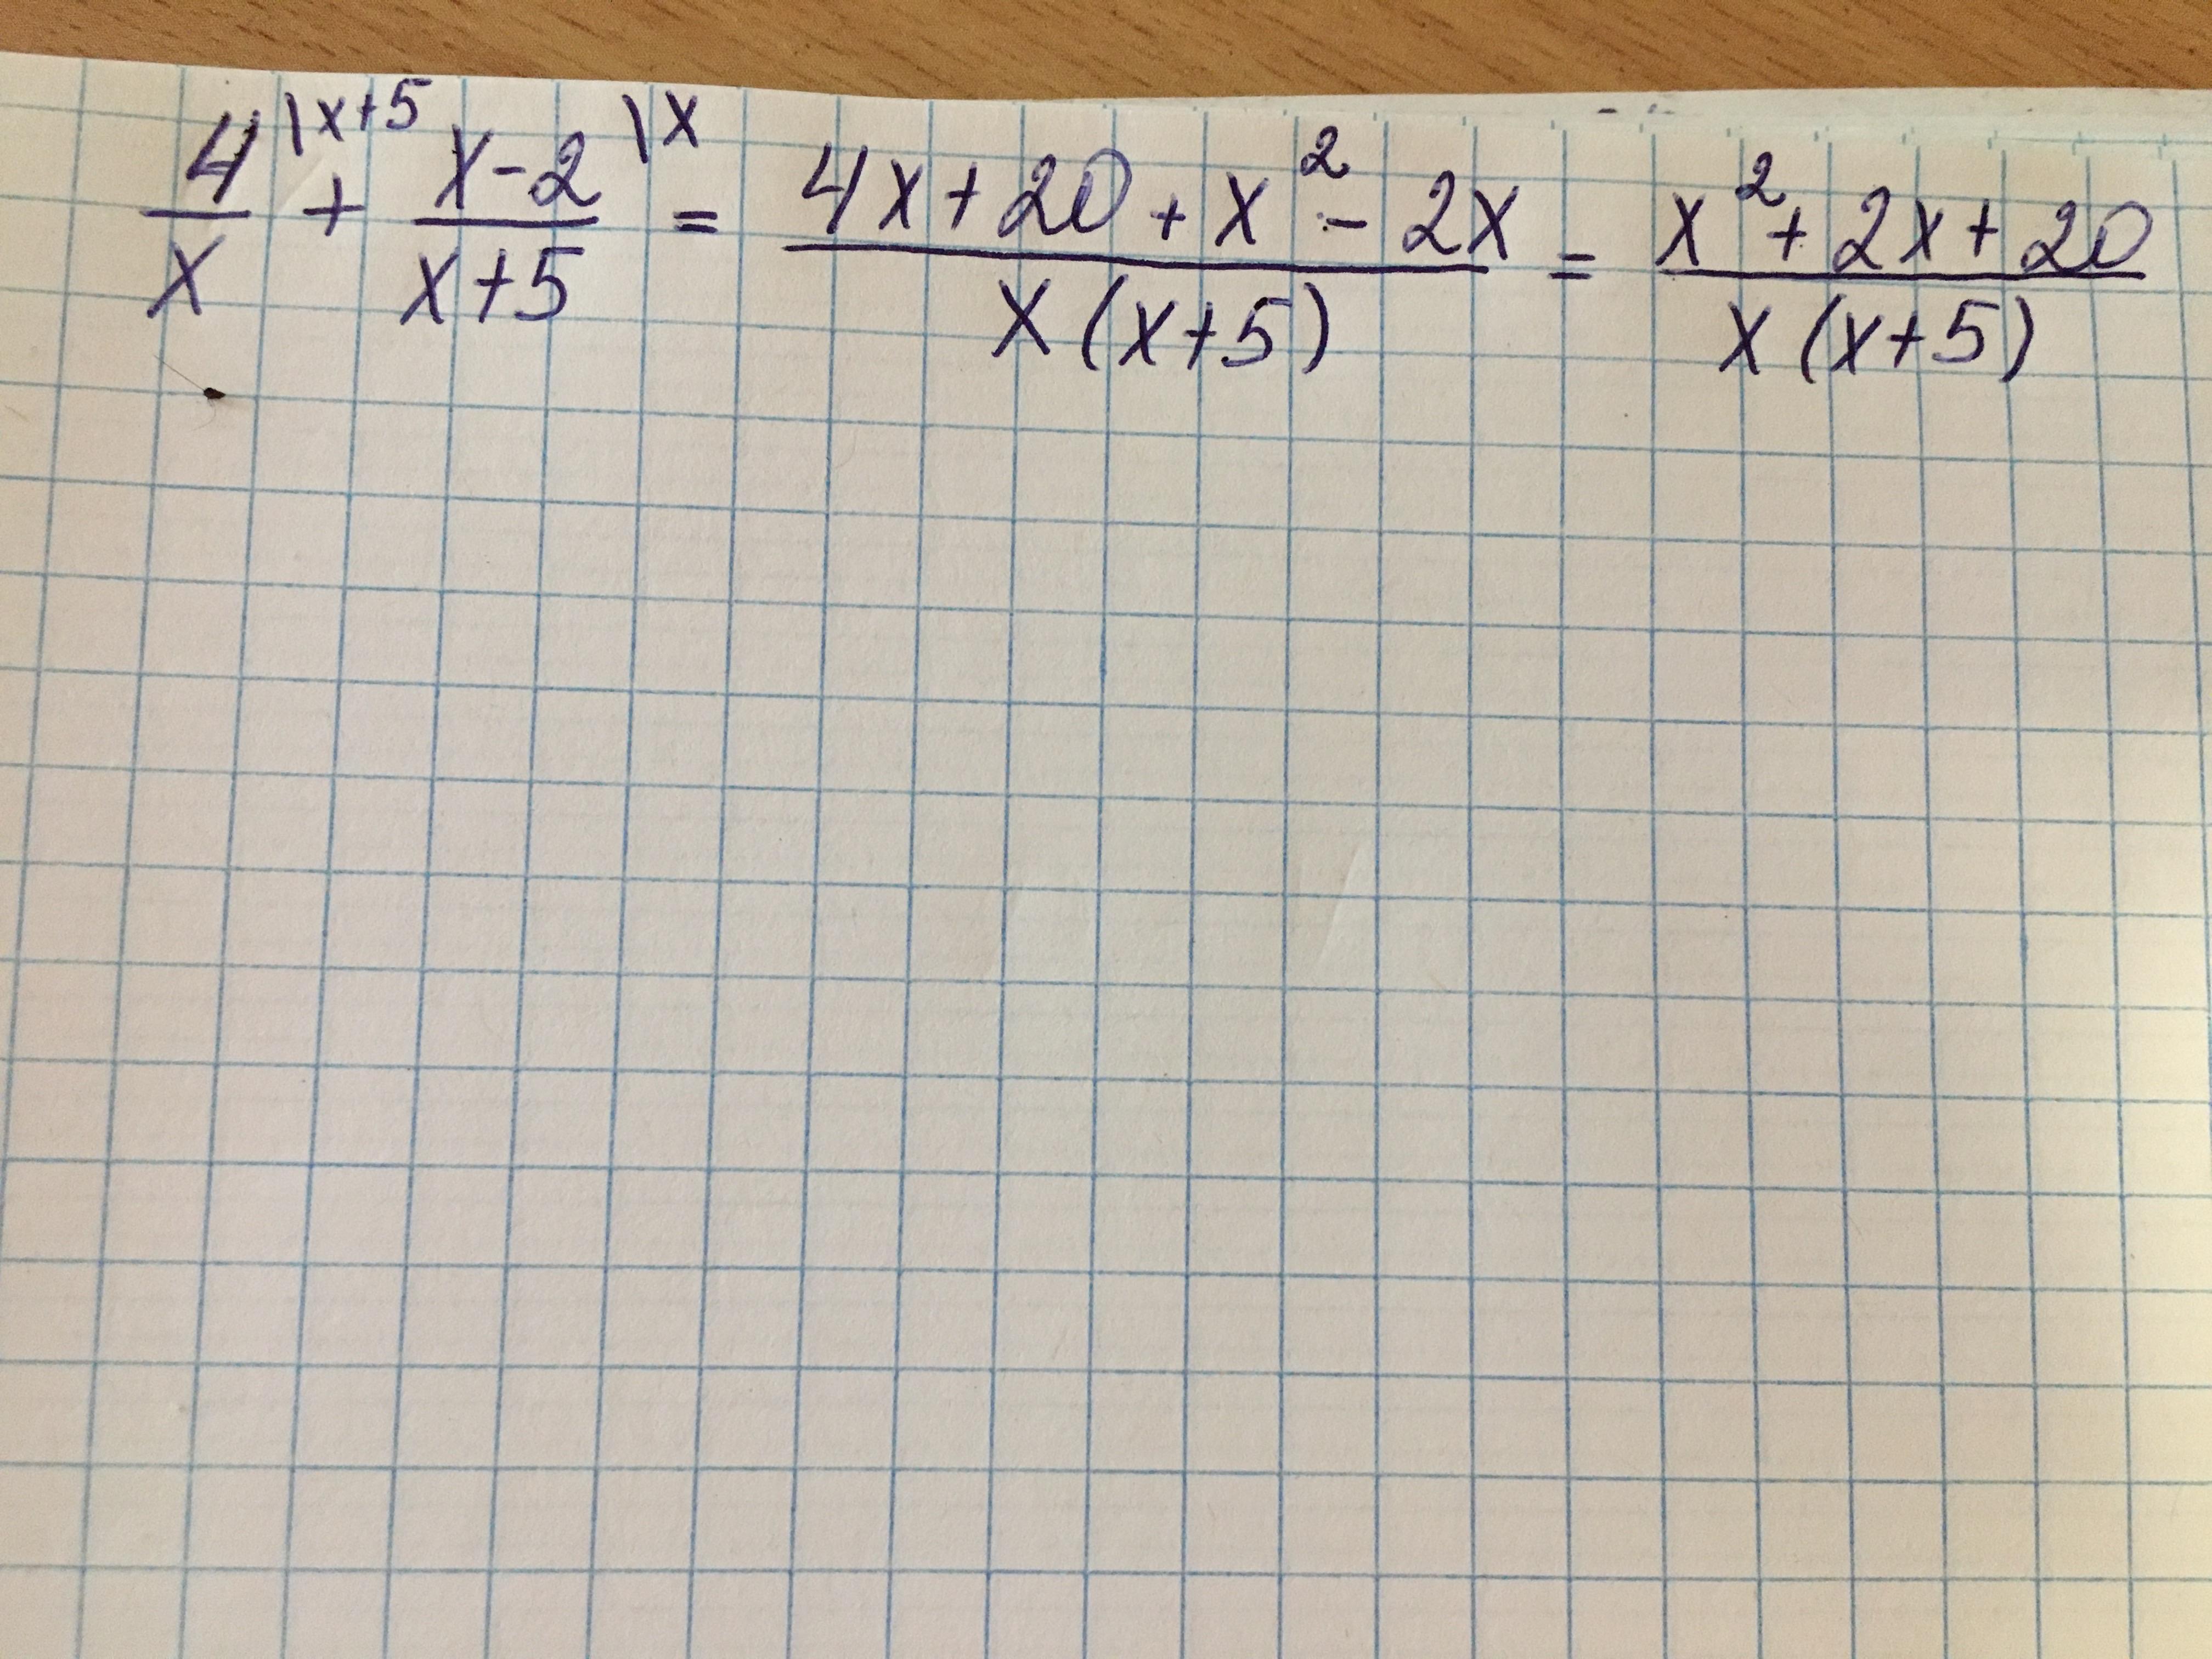 4/x \x+5 + x-2/x+5 \x = 4x+20+x²-2x/x(x+5) = x²+2x+20/x(x+5)